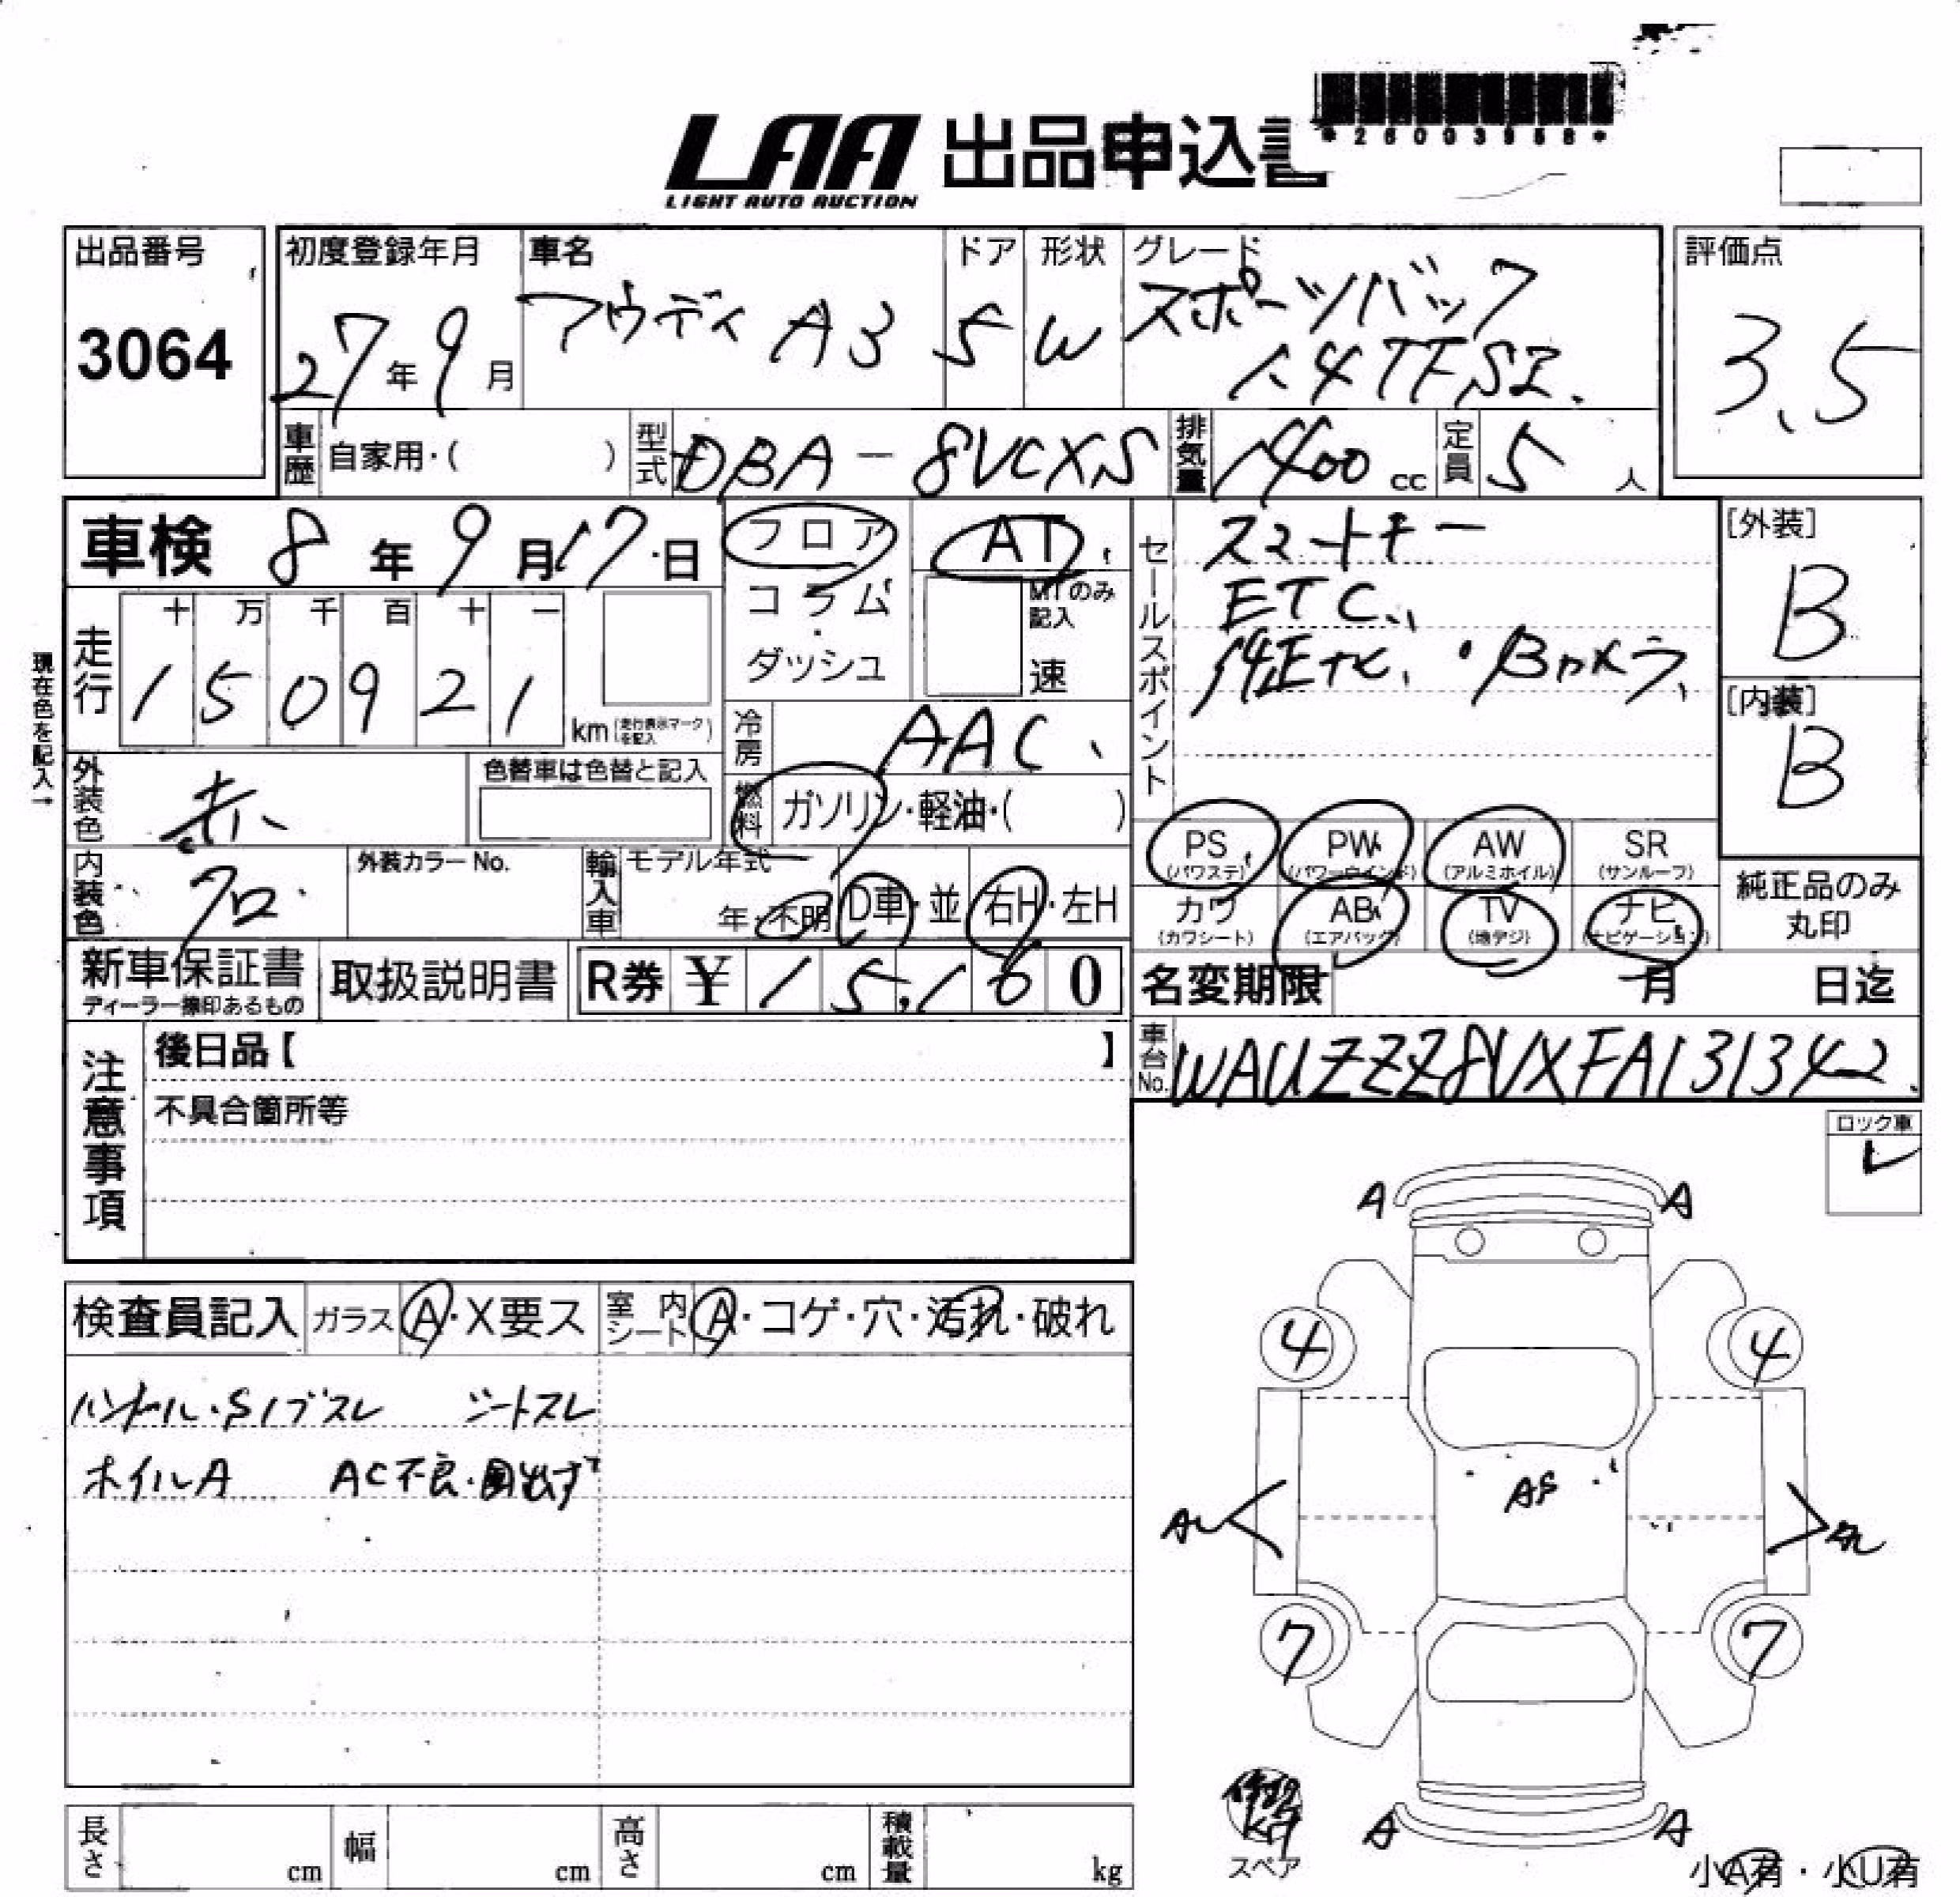 *26003958*
LAA 出品申込書
LIGHT AUTO AUCTION
出品番号
3064
初度登録年月
27年9月
車名
アウディ A3
ドア
5
形状
W
グレード
スポーツバック
1.4 TFSI.
評価点
3.5
車歴 自家用・( )
型式 DBA-8VCXS
排気量 1400 cc
定員 5 人
車検 8年9月17日
フロア
コラム
・
ダッシュ
AT
MTのみ記入
速
現在色を記入→
走行
十 万 千 百 十 一
1 5 0 9 2 1
km (走行表示マークを記入)
冷房 AAC
燃料 ガソリン・軽油・( )
外装色 赤
色替車は色替と記入
内装色 クロ
外装カラーNo.
輸入車 モデル年式
年・不明 D車・並 右H・左H
セールスポイント
スマートキー
ETC
純正ナビ ・Bカメラ
[外装]
B
[内装]
B
PS (パワステ)
PW (パワーウインド)
AW (アルミホイル)
SR (サンルーフ)
カワ (カワシート)
AB (エアバッグ)
TV (地デジ)
ナビ (ナビゲーション)
純正品のみ
丸印
新車保証書
ディーラー捺印あるもの
取扱説明書
R券 ¥ 15,160
名変期限 月 日迄
車台No. WAUZZZ8VXFA131342
注意事項
後日品【 】
不具合箇所等
ロック車
レ
検査員記入 ガラス A・X要ス 室内シート A・コゲ・穴・汚れ・破れ
ハンドル・Sノブスレ シートスレ
ホイルA AC不良・風出ず
A A
4 4
AS
7 7
A A
スペア
小A有・小U有
長さ cm
幅 cm
高さ cm
積載量 kg